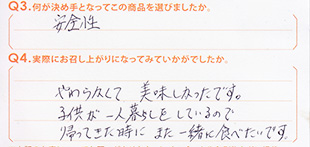 Q3.何が決め手となってこの商品を選びましたか。
安全性
Q4.実際にお召し上がりになってみていかがでしたか。
やわらなくて 美味しかったです。
子供が一人暮らしをしているので
帰ってきた時に また一緒に食べたいです。